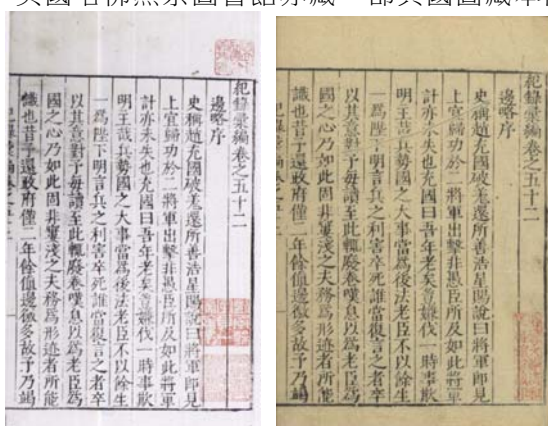 美國哈佛燕京圖書館亦藏一部與國圖藏本
紀錄彙編卷之五十二
邊略序
史稱趙充國破羌還所善浩星賜說曰將軍即見
上宜歸功於二將軍出擊非愚臣所及如此將軍
計亦未失也充國曰吾年老矣豈嫌伐一時事欺
明主哉兵勢國之大事當爲後法老臣不以餘生
一爲陛下明言兵之利害卒死誰當復言之者卒
以其意對予每讀至此輒廢卷嘆息以爲老臣爲
國之心乃如此固非寠淺之夫務爲形迹者所能
識也昔予還政府僅二年餘値邊徼多故予乃竭
紀錄彙編卷之五十二
邊略序
史稱趙充國破羌還所善浩星賜說曰將軍即見
上宜歸功於二將軍出擊非愚臣所及如此將軍
計亦未失也充國曰吾年老矣豈嫌伐一時事欺
明主哉兵勢國之大事當爲後法老臣不以餘生
一爲陛下明言兵之利害卒死誰當復言之者卒
以其意對予每讀至此輒廢卷嘆息以爲老臣爲
國之心乃如此固非寠淺之夫務爲形迹者所能
識也昔予還政府僅二年餘値邊徼多故予乃竭